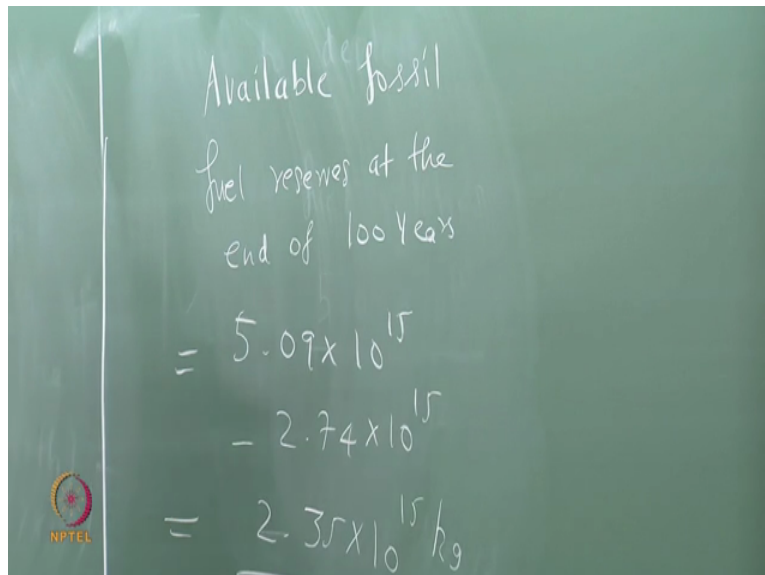 Available fossil
fuel reserves at the
end of 100 Years
= 5.09 x 10^15
- 2.74 x 10^15
= 2.35 x 10^15 kg
NPTEL